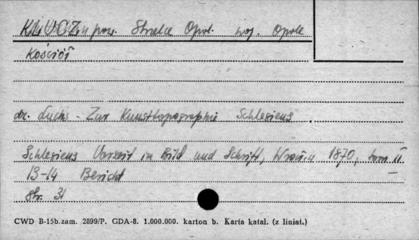 KLUCZ, pow. Strzelce Opol. woj. Opole
Kościół
dr. Luchs - Zur Kunsttopographie Schlesiens.
Schlesiens Vorzeit in Bild und Schrift, Wrocław 1870, tom II
13-14 Bericht
Str. 31
CWD B-15b. zam. 2899/P. GDA-8. 1.000.000. karton b. Karta katal. (z liniat.)